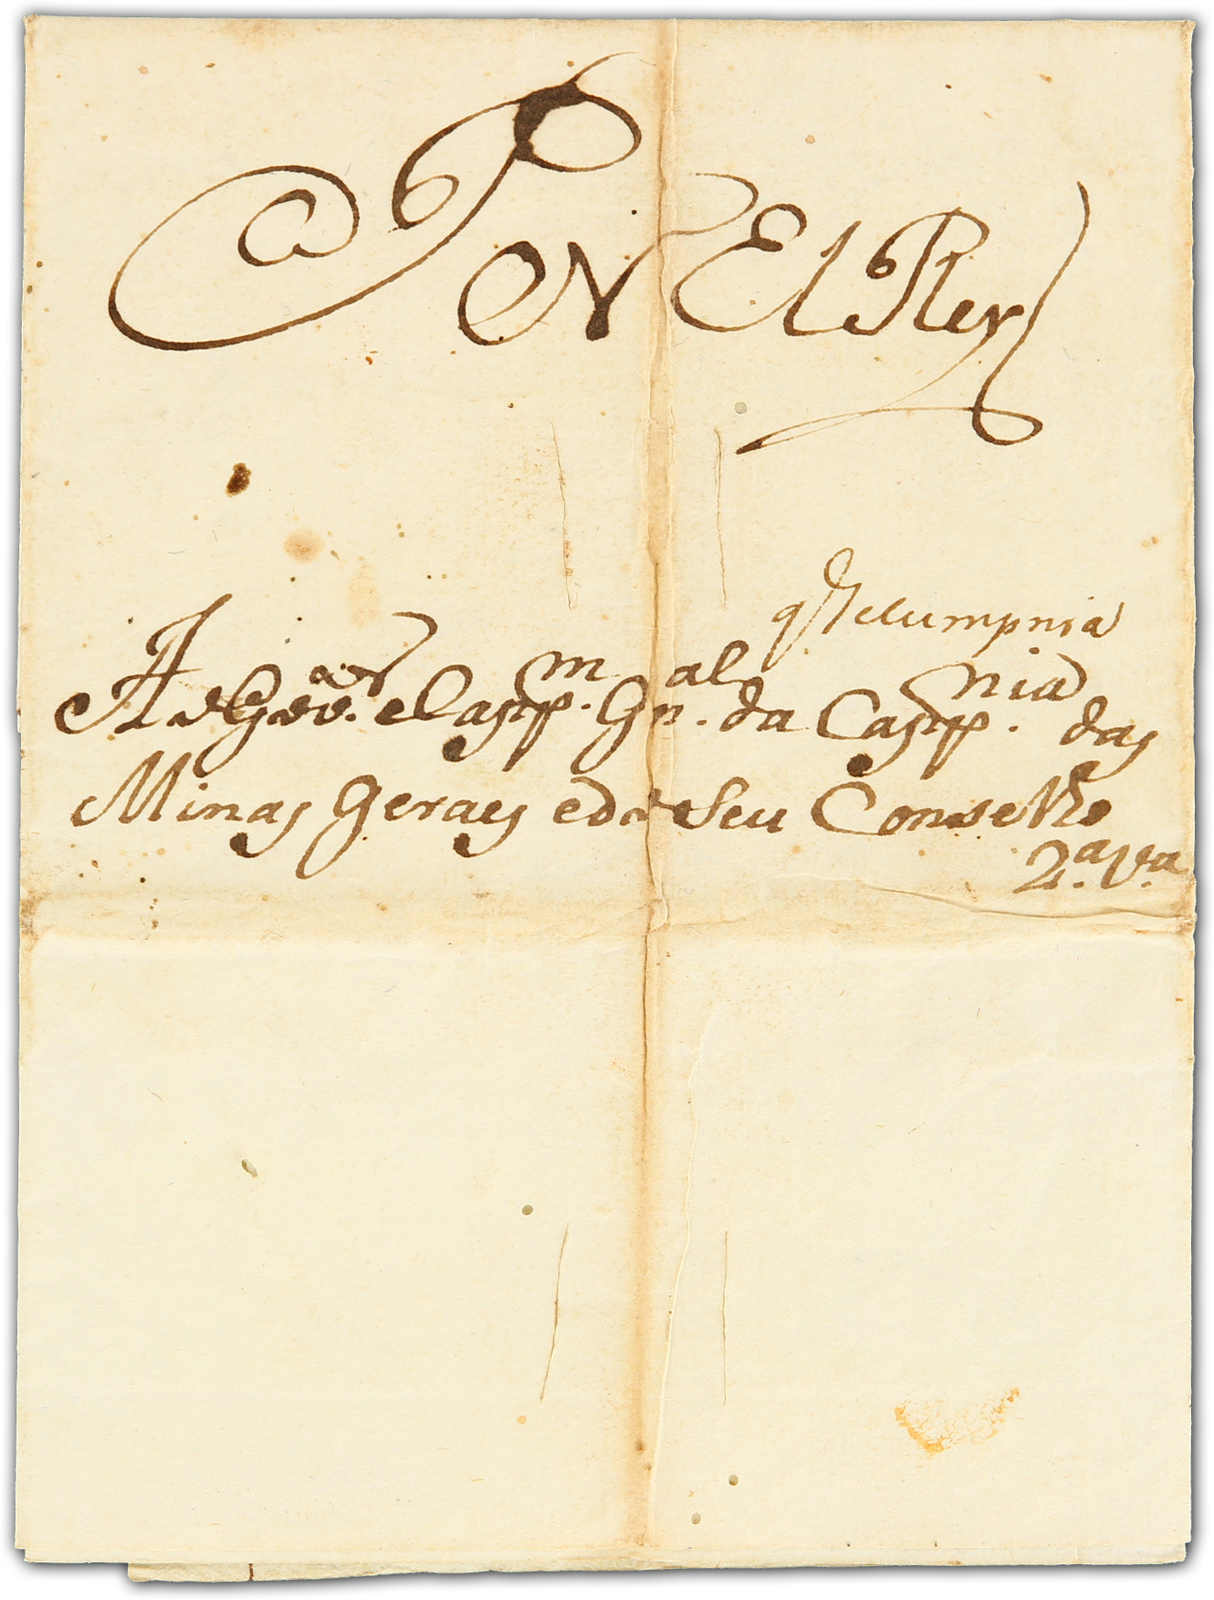 Por El Rey
Ao Gov.or e Capp.m Gn.al da Capp.nia das
Minas Geraes e do seu Conselho
2.a v.a